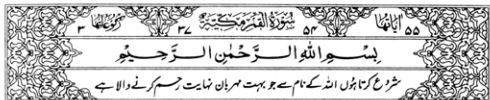 اٰیاتھا ۵۵ ۵۴ سُوْرَۃُ الْقَمَرِ مَکِّیَّۃٌ ۳۷ رکوعاتھا ۳
بِسْمِ اللّٰهِ الرَّحْمٰنِ الرَّحِیْمِ
شروع کرتا ہوں اللہ کے نام سے جو بہت مہربان نہایت رحم کرنے والا ہے